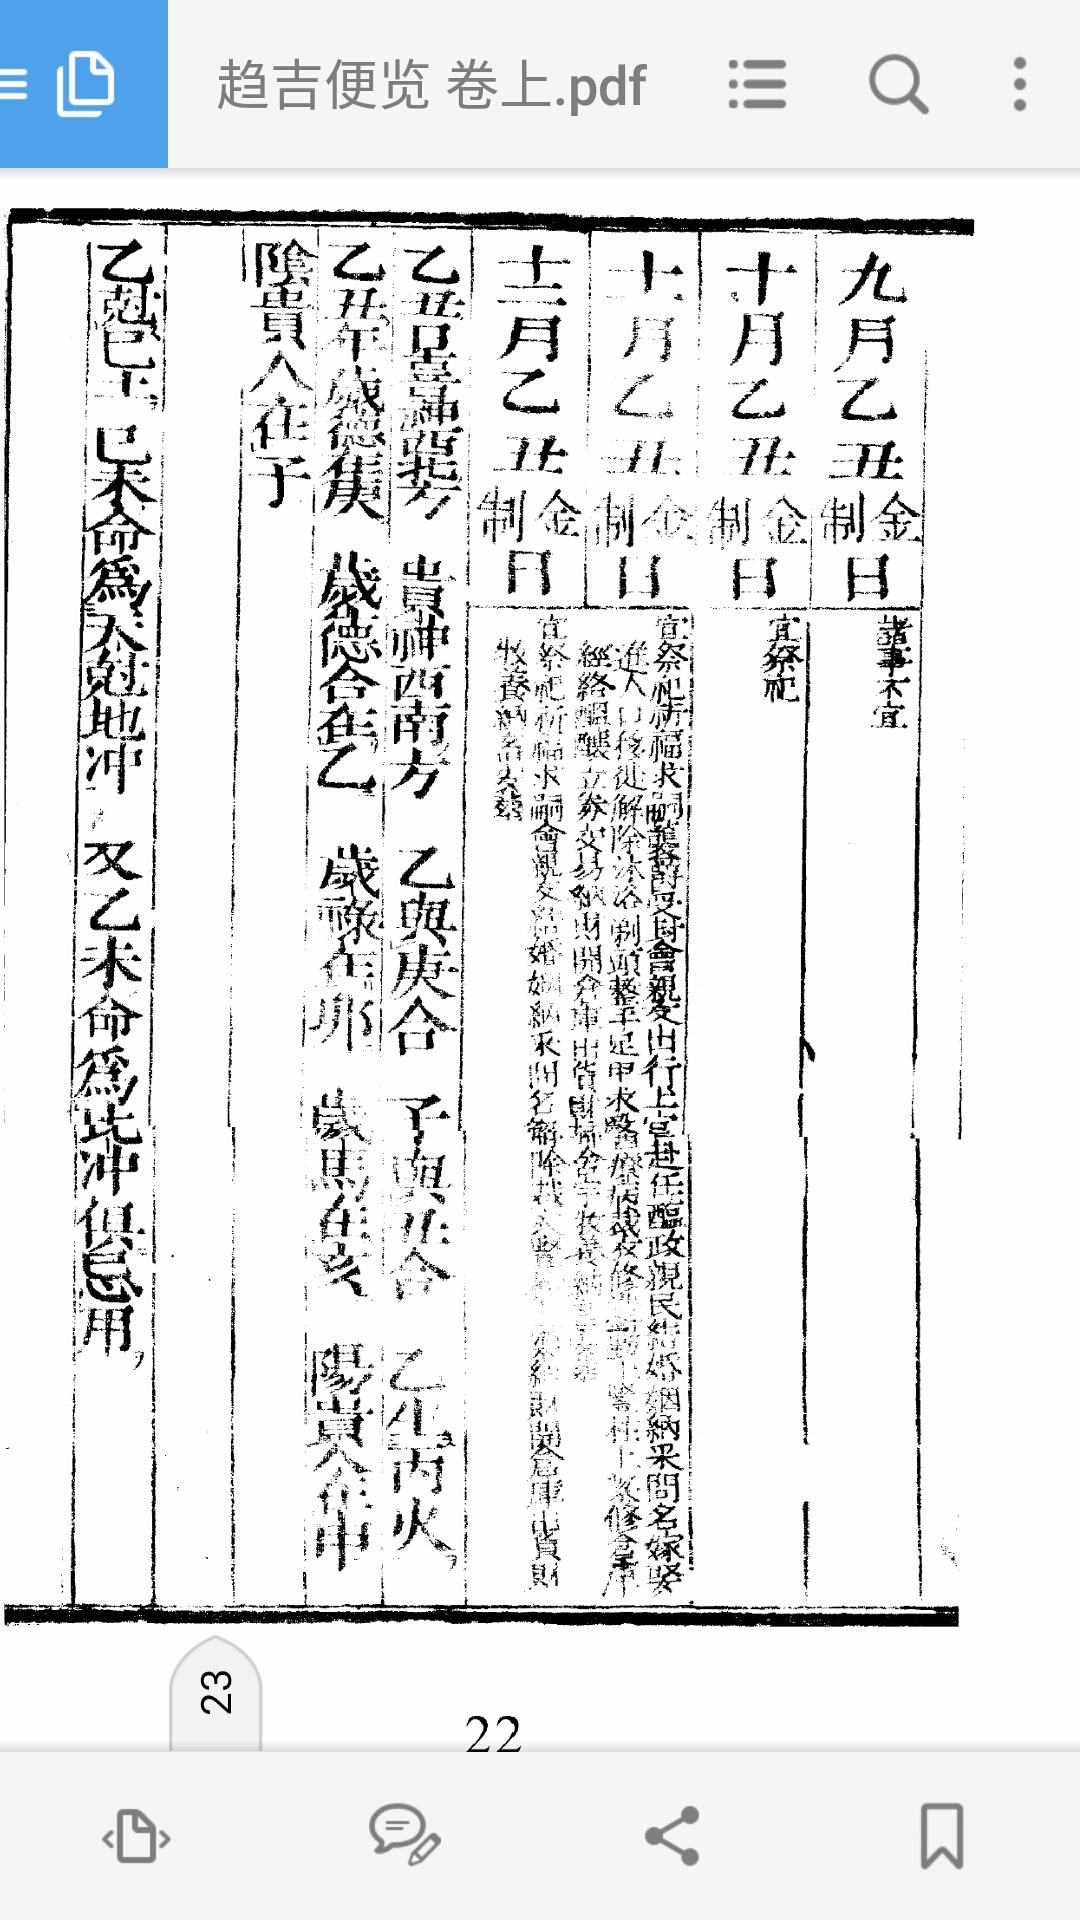 趋吉便览 卷上.pdf
九月乙丑金制日 諸事不宜
十月乙丑金制日 宜祭祀
十一月乙丑金制日 宜祭祀祈福求嗣襲爵受封會親友出行上官赴任臨政親民結婚姻納采問名嫁娶
進人口移徙解除沐浴剃頭整手足甲求醫療病裁衣修造動土豎柱上梁修倉庫
經絡醞釀立券交易納財開倉庫出貨財
十二月乙丑金制日 宜祭祀祈福求嗣會親友結婚姻納采問名解除裁衣豎 納財開倉庫出貨財
牧養納畜安葬
乙丑日喜神西北方 貴神西南方 乙與庚合 子與丑合 乙生丙火
乙丑年歲德在庚 歲德合在乙 歲祿在卯 歲馬在亥 陽貴人在申
陰貴人在子
乙尅己土 己未命為天尅地冲 又乙未命為比冲俱忌用
23
22